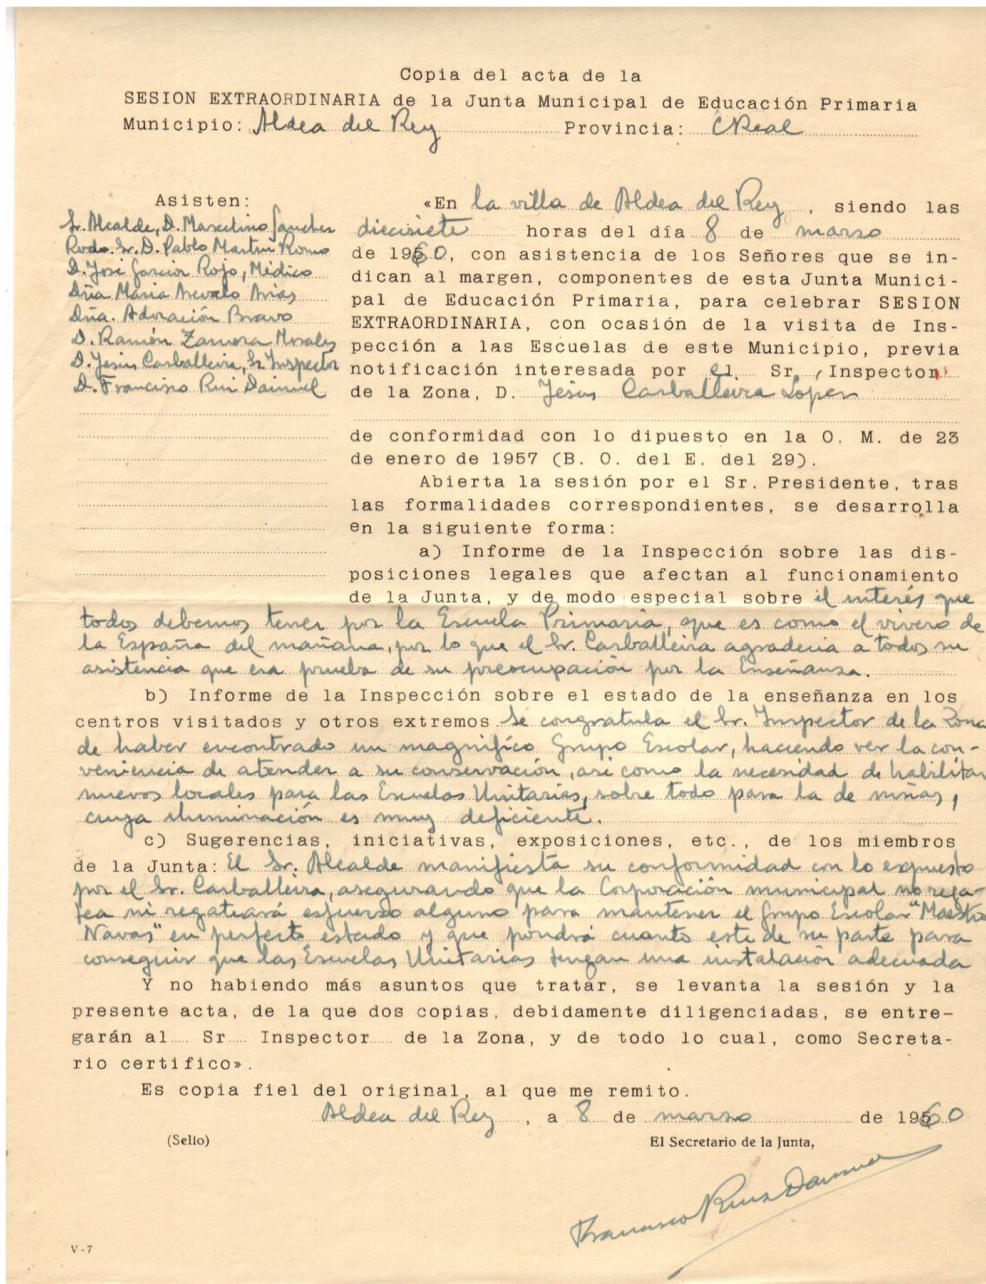 Copia del acta de la
SESION EXTRAORDINARIA de la Junta Municipal de Educación Primaria
Municipio: Aldea del Rey Provincia: CReal
Asisten:
Sr. Alcalde, D. Marcelino Sanchez
Rvdo. Sr. D. Pablo Martin Romo
D. José Garcia Rojo, Médico
Dña Maria Arevalo Arias
Dña. Adoración Bravo
D. Ramón Zamora Morales
D. Jesús Carballeira, Sr Inspector
D. Francisco Ruiz Daimiel
«En la villa de Aldea del Rey, siendo las
diecisiete horas del día 8 de marzo
de 1960, con asistencia de los Señores que se in-
dican al margen, componentes de esta Junta Munici-
pal de Educación Primaria, para celebrar SESION
EXTRAORDINARIA, con ocasión de la visita de Ins-
pección a las Escuelas de este Municipio, previa
notificación interesada por el Sr. Inspector
de la Zona, D. Jesús Carballeira Lopez
de conformidad con lo dipuesto en la O. M. de 23
de enero de 1957 (B. O. del E. del 29).
Abierta la sesión por el Sr. Presidente, tras
las formalidades correspondientes, se desarrolla
en la siguiente forma:
a) Informe de la Inspección sobre las dis-
posiciones legales que afectan al funcionamiento
de la Junta, y de modo especial sobre el interés que
todos debemos tener por la Escuela Primaria, que es como el vivero de
la España del mañana, por lo que el Sr. Carballeira agradecia a todos su
asistencia que era prueba de su preocupación por la Enseñanza.
b) Informe de la Inspección sobre el estado de la enseñanza en los
centros visitados y otros extremos Se congratula el Sr. Inspector de la Zona
de haber encontrado un magnifico Grupo Escolar, haciendo ver la con-
veniencia de atender a su conservación, asi como la necesidad de habilitar
nuevos locales para las Escuelas Unitarias, sobre todo para la de niñas,
cuya iluminación es muy deficiente.
c) Sugerencias, iniciativas, exposiciones, etc., de los miembros
de la Junta: El Sr. Alcalde manifiesta su conformidad con lo expuesto
por el Sr. Carballeira, asegurando que la Corporación municipal no rega-
tea ni regateará esfuerzo alguno para mantener el Grupo Escolar "Maestro
Navas" en perfecto estado y que pondrá cuanto este de su parte para
conseguir que las Escuelas Unitarias tengan una instalación adecuada
Y no habiendo más asuntos que tratar, se levanta la sesión y la
presente acta, de la que dos copias, debidamente diligenciadas, se entre-
garán al Sr Inspector de la Zona, y de todo lo cual, como Secreta-
rio certifico».
Es copia fiel del original, al que me remito.
Aldea del Rey, a 8 de marzo de 1960
(Sello) El Secretario de la Junta,
Francisco Ruiz Daimiel
V-7